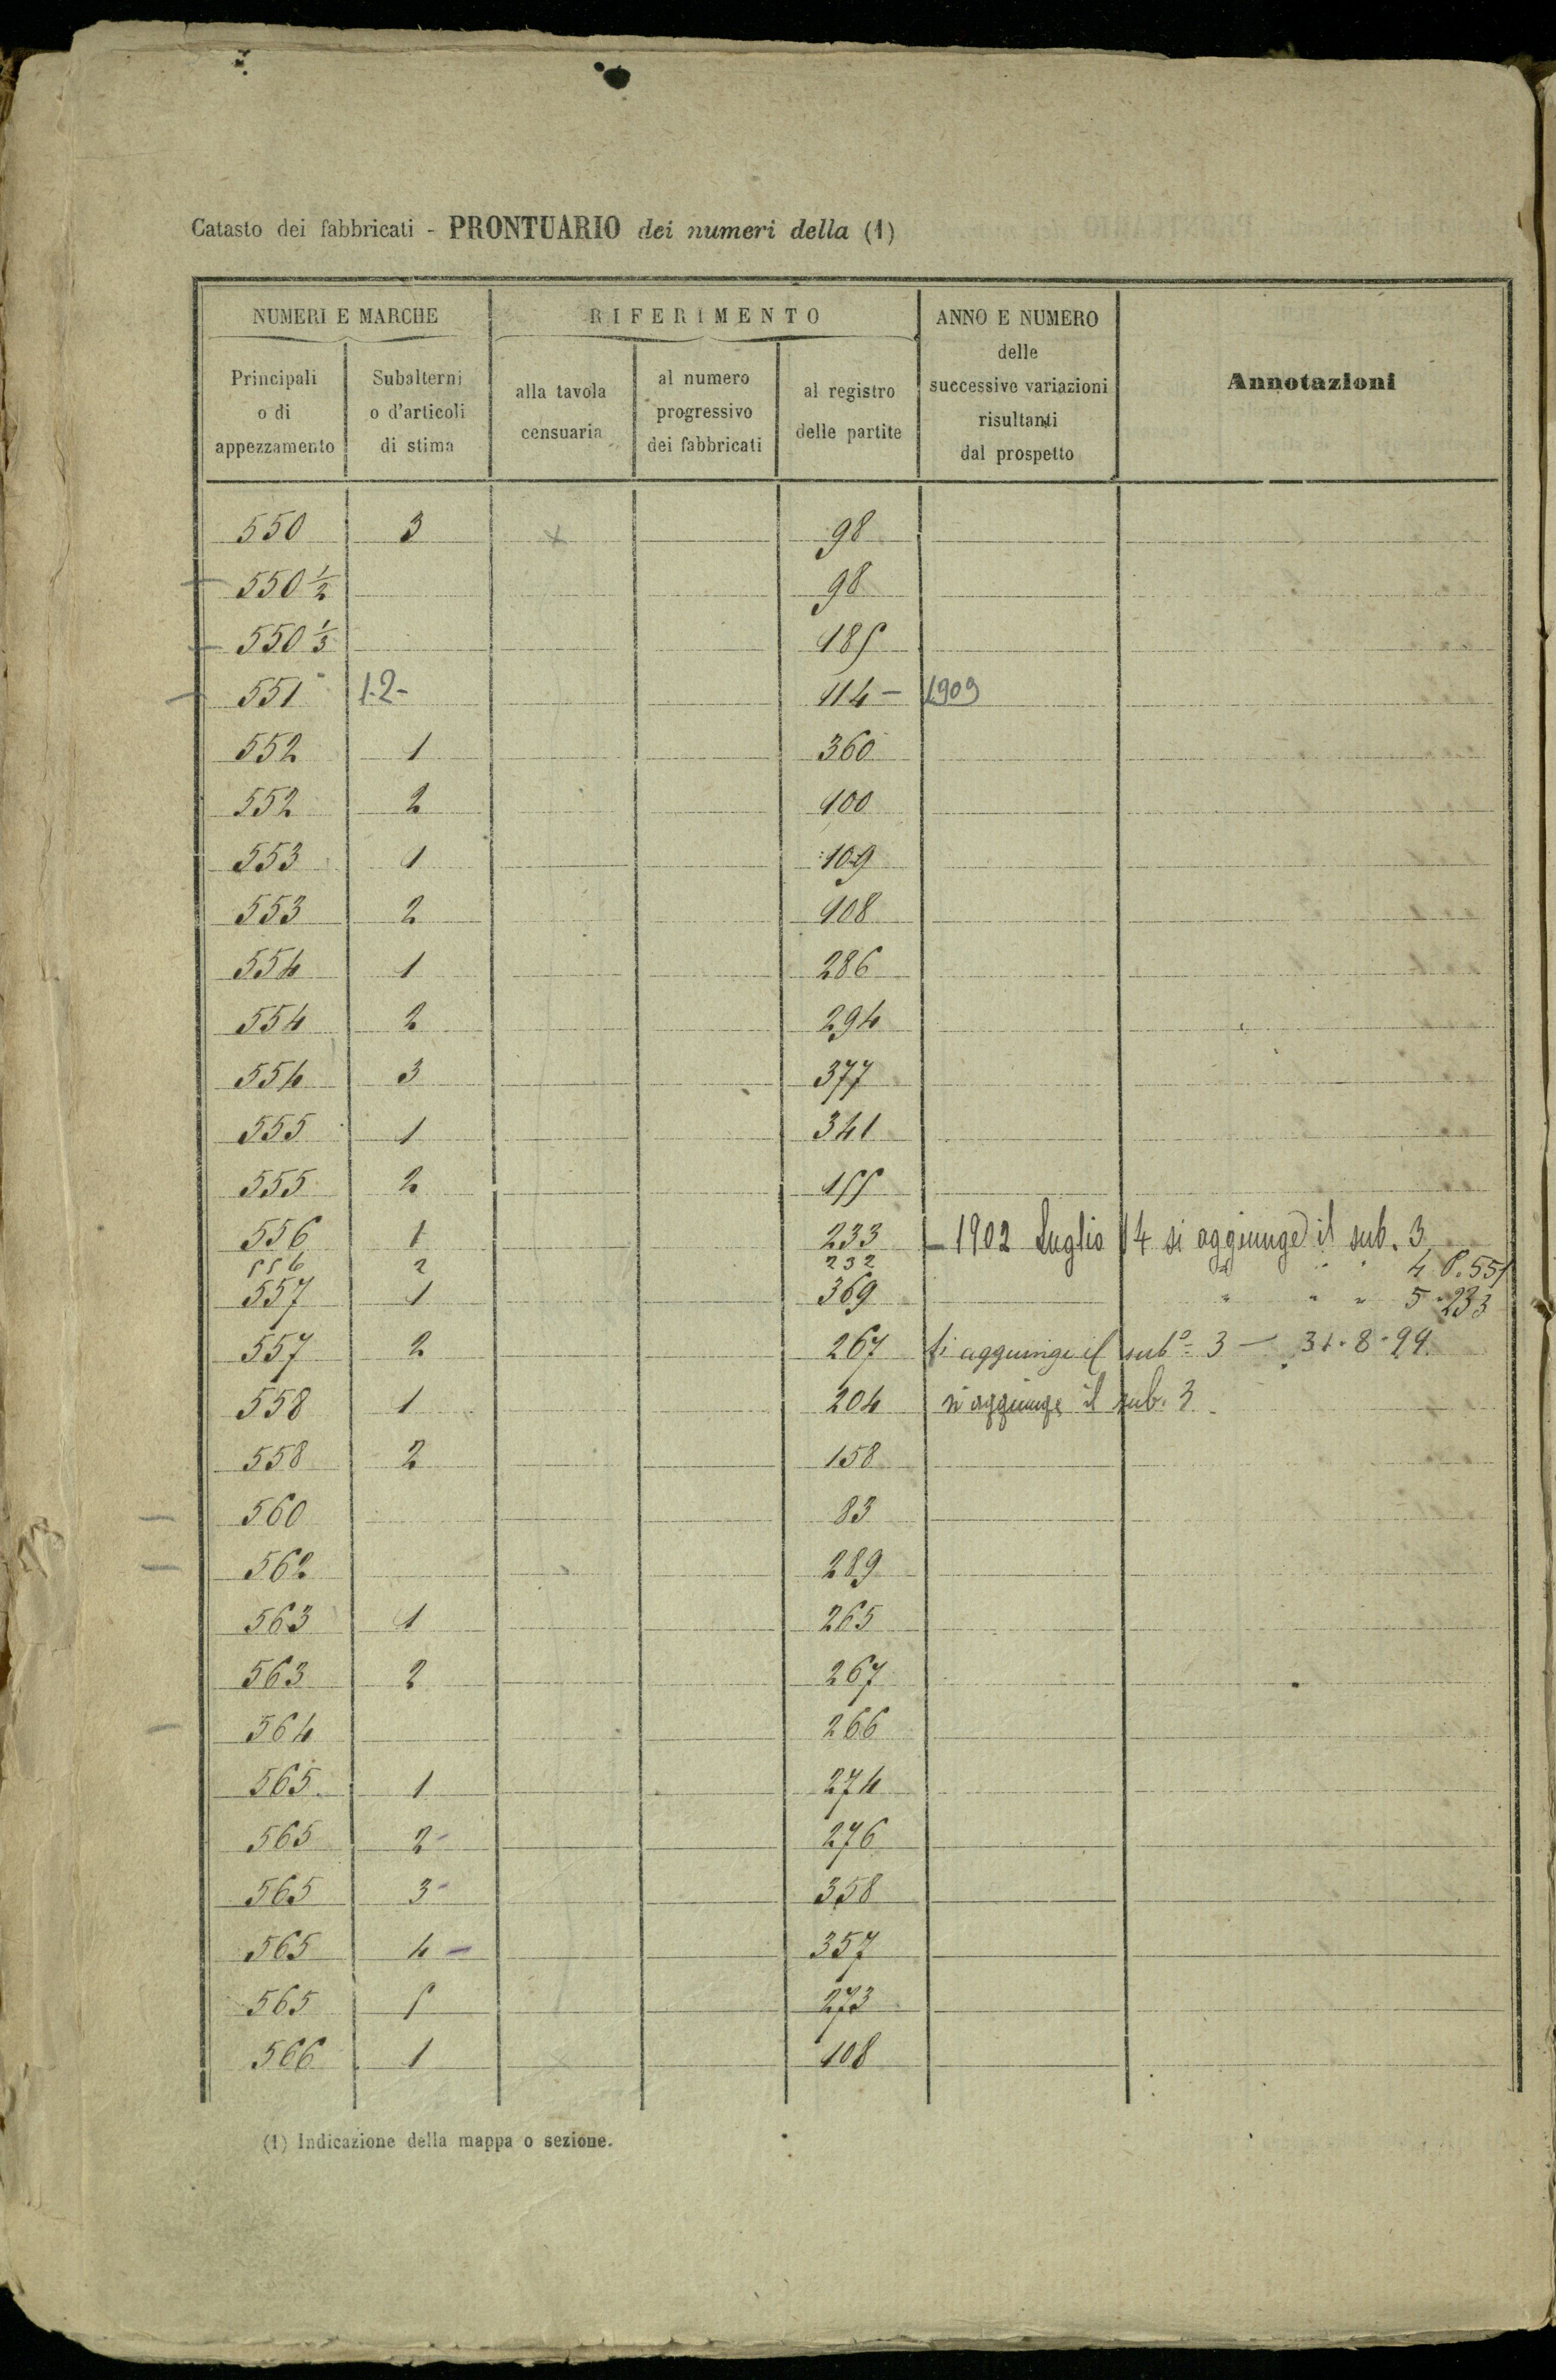 Catasto dei fabbricati - PRONTUARIO dei numeri della (1)
NUMERI E MARCHE
RIFERIMENTO
ANNO E NUMERO delle successive variazioni risultanti dal prospetto
Annotazioni
Principali o di appezzamento
Subalterni o d'articoli di stima
alla tavola censuaria
al numero progressivo dei fabbricati
al registro delle partite
550 3 x 98
550 1/2 98
550 1/3 185
551 1.2- 114 - 1909
552 1 360
552 2 100
553 1 109
553 2 108
554 1 286
554 2 294
554 3 377
555 1 341
555 2 155
556 1 233 - 1902 Luglio 14 si aggiunge il sub. 3
556 2 232 " " " 4 P. 551
557 1 369 " " " 5 " 233
557 2 267 Si aggiunge il sub.º 3 - 31.8.99.
558 1 204 si aggiunge il sub. 3
558 2 158
560 83
562 289
563 1 265
563 2 267
564 266
565 1 274
565 2 276
565 3 358
565 4 357
565 5 273
566 1 108
(1) Indicazione della mappa o sezione.